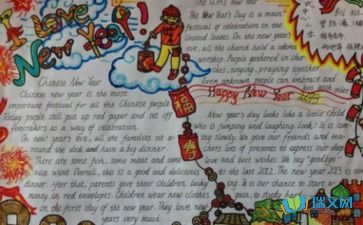 I Love
New Year!
Chinese New Year
Chinese new year is the most
important festival for all the Chinese people
Today people still put up red paper and set off
firecrackers as a way of celebration.
On new year's eve, all the families sit a-
round the desk and have a big dinner.
There are some fish, some meat and some
nice wine. Overall, this is a good and delicious
dinner. After that, parents give their children lucky
money in red envelopes. Children wear new clothes
on the first day of the new year. They love new
years very much.
福
The New Year's Day is a main
festival of celebration in the
United States. On the new year's
eve, all the church hold a
worship. People gathered in
singing, praying together.
Even unknown people can embrace and
each other
Happy New Year
New year's day looks like a little child
who is jumping and laughing. look! It is co-
ming lovely. We give our friends and
lots of presents to express our
love and best wishes. We say "goodbye"
to the last 2012. The new year 2013 is
coming. It is our chance to
again.
瑞文网